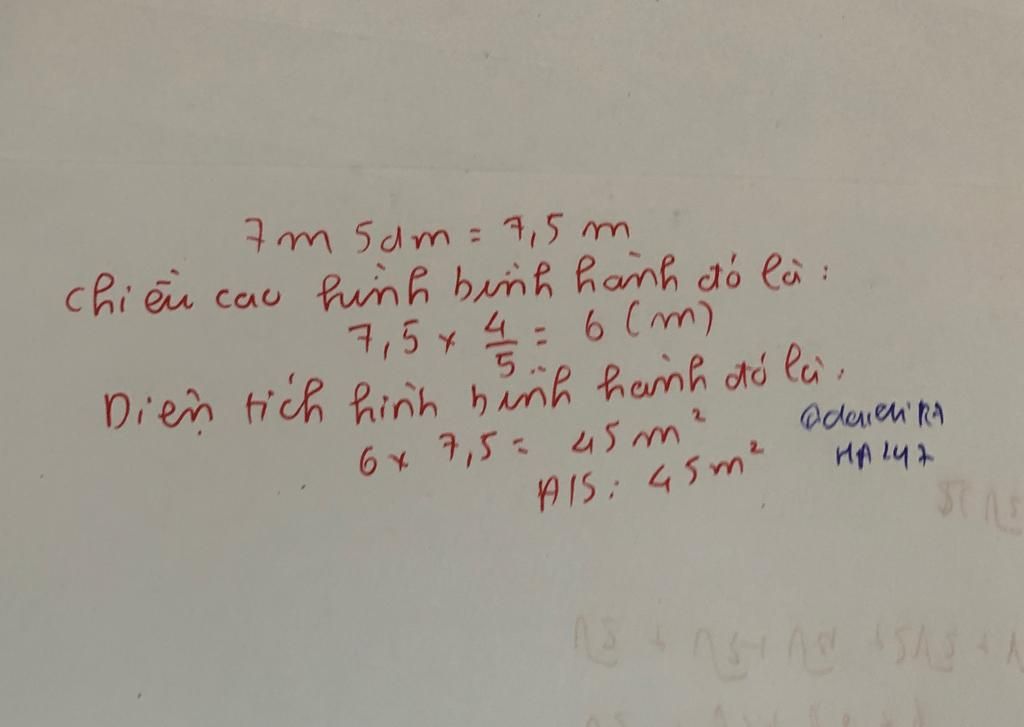 7m 5dm = 7,5 m
Chiều cao hình bình hành đó là:
7,5 x 4/5 = 6 (m)
Diện tích hình bình hành đó là:
6 x 7,5 = 45 m²
Đ/S: 45 m²